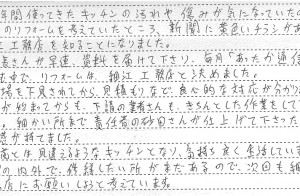 年間使ってきたキッチンの汚れや傷みが気になっていた
のリフォームを考えていたところ、新聞に黄色いチラシがあ
工務店を知ることになりました。
さんが早速、資料を届けて下さり、毎月「あったか通信
リフォームは、細江工務店と決めました。
場を下見されてから、見積もりなど、良心的な対応が分かり
が始まってからも、下請の業者さんも、きちんとした作業をして
、細かい所まで責任者の砂田さんが仕上げて下さった
感が持てました。
前とは見違えるようなキッチンとなり、気持ち良く生活してい
の内外で、修繕したい所がまだあるので、次回も細
店にお願いしようと考えています。